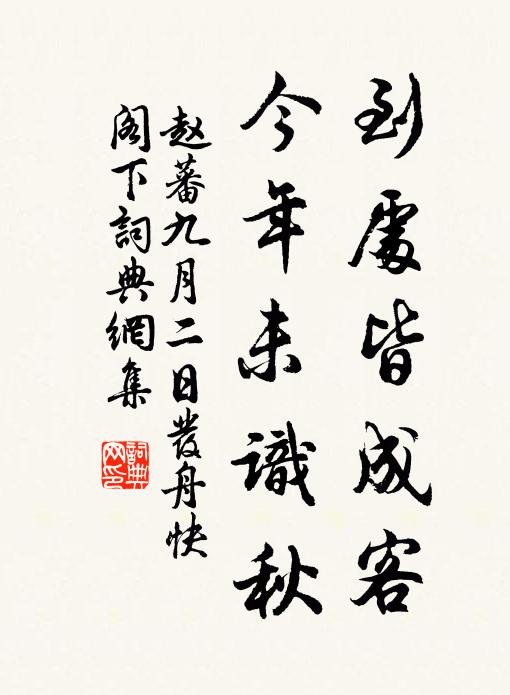 到處皆成客
今年未識秋
赵蕃九月二日發舟快
阁下詞典網集
詞典
网印